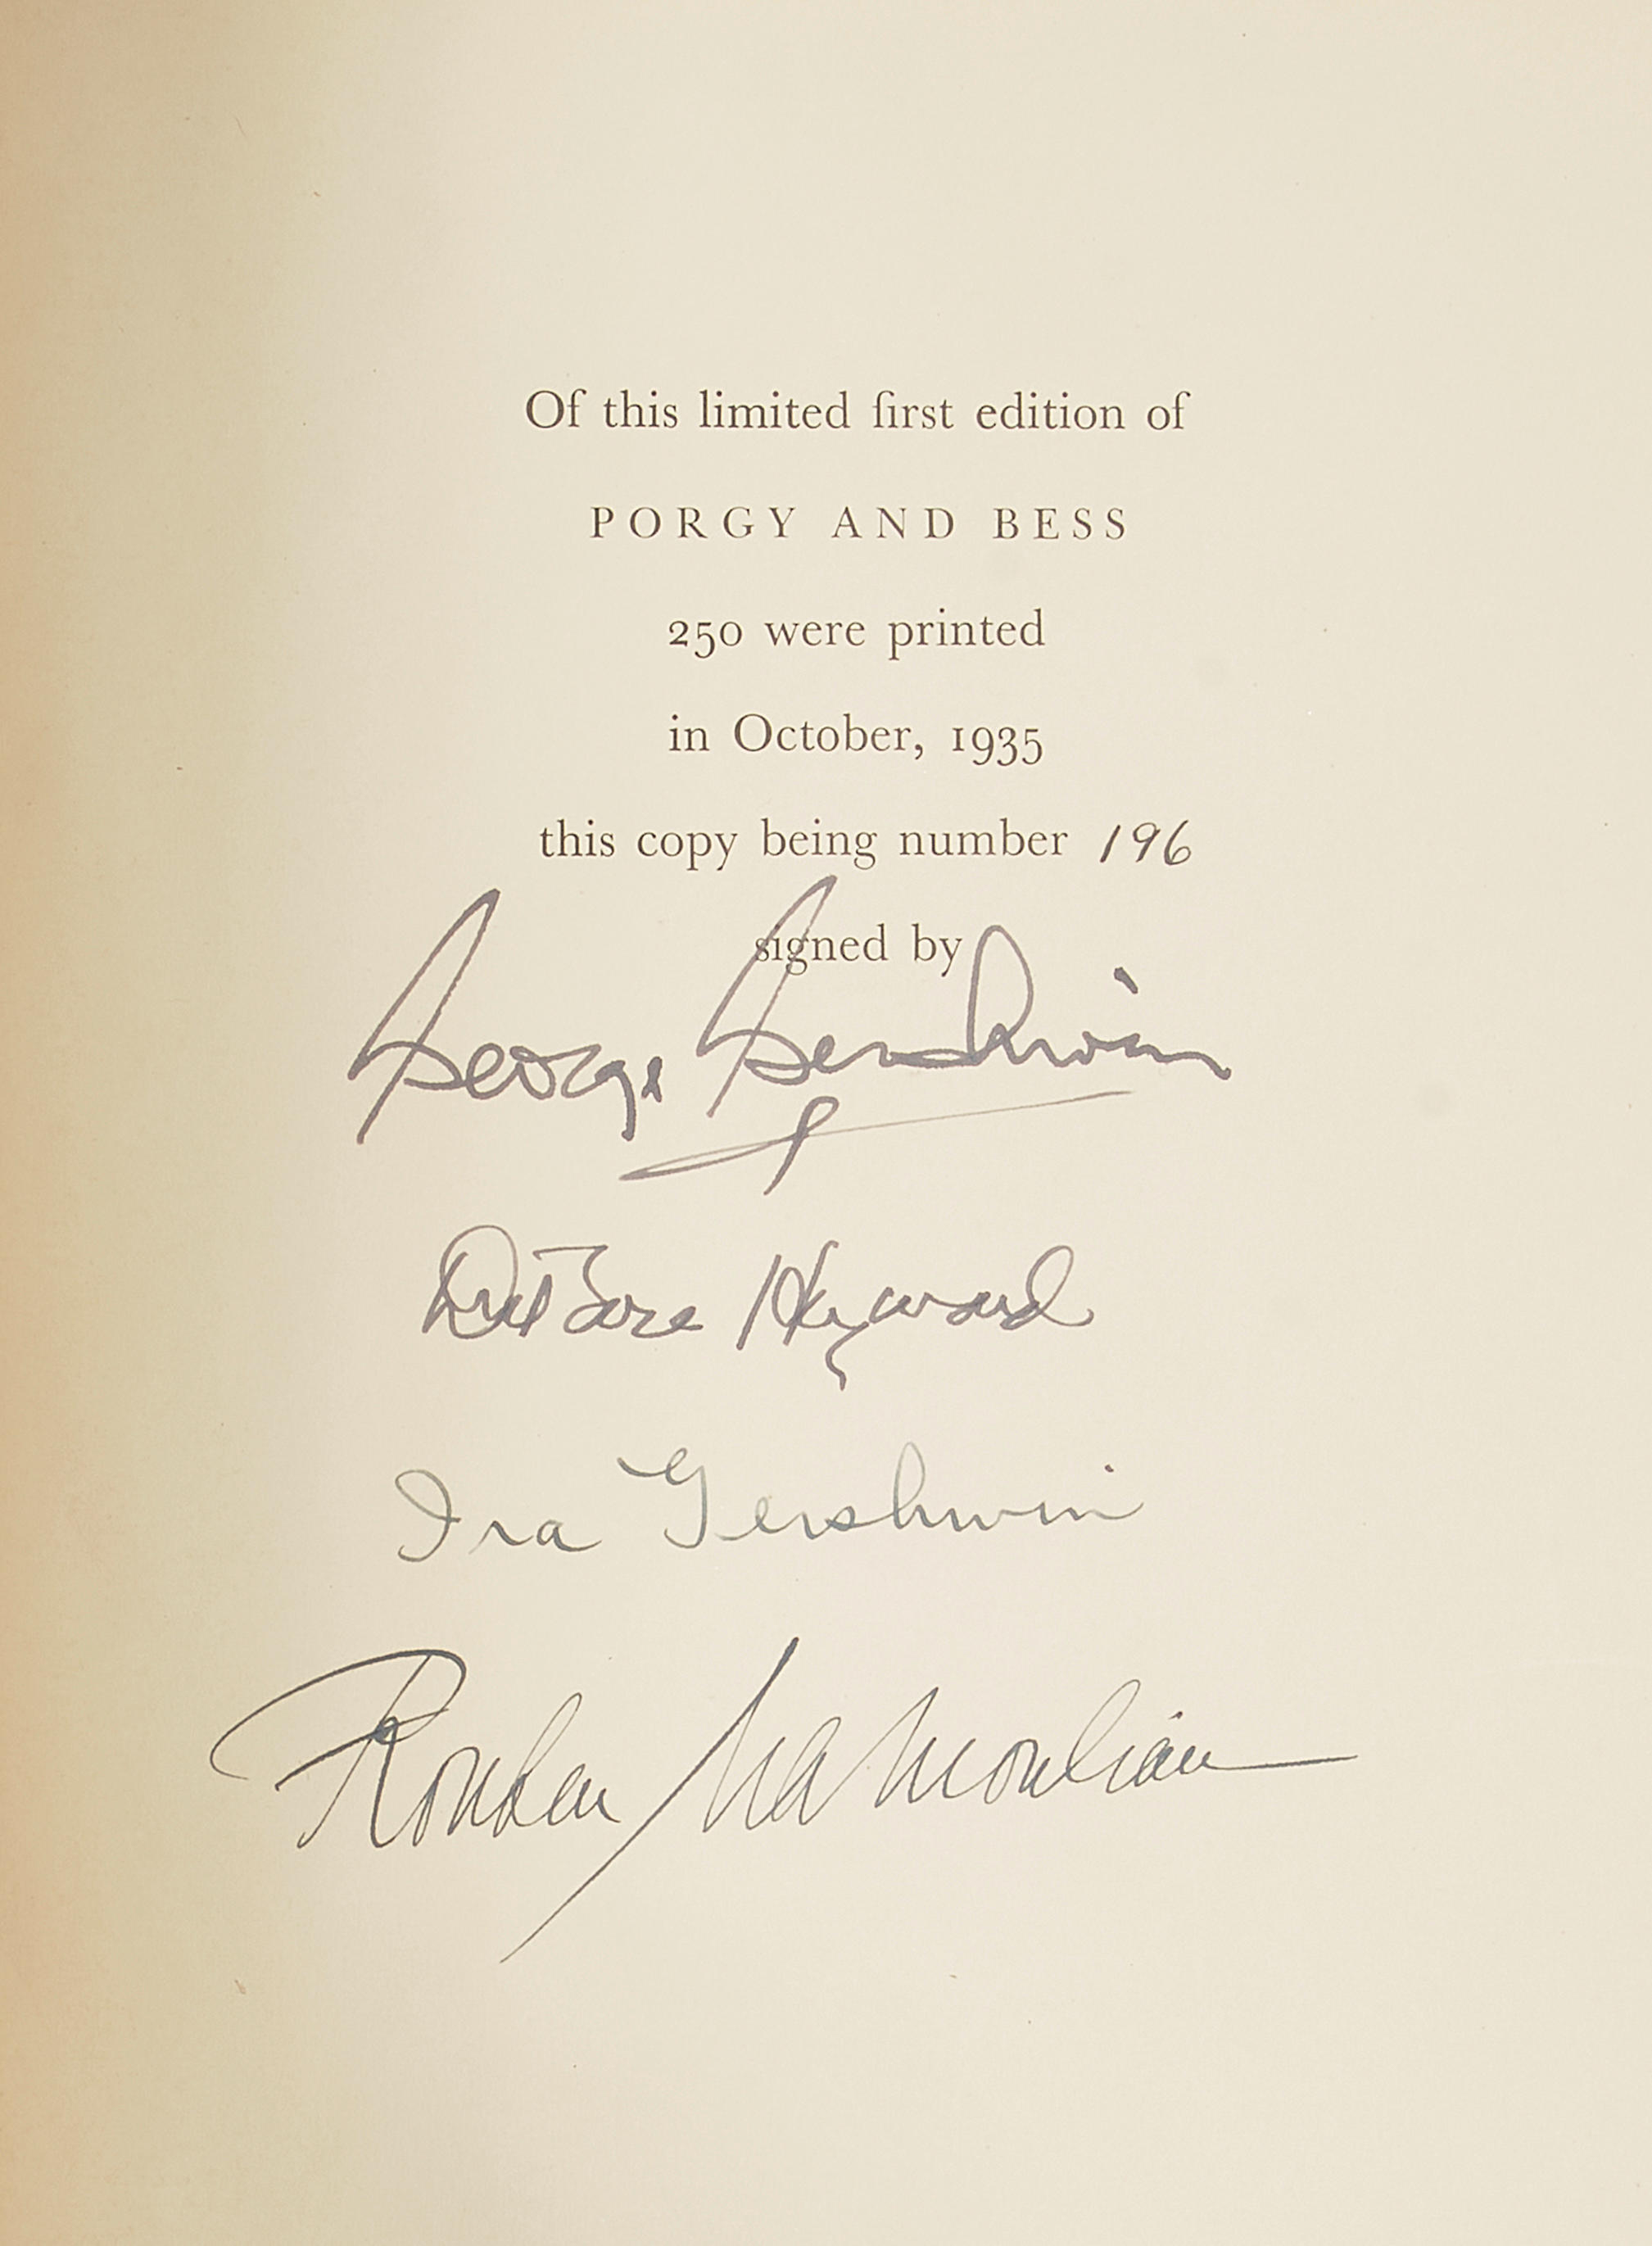 Of this limited first edition of
PORGY AND BESS
250 were printed
in October, 1935
this copy being number 196
signed by
George Gershwin
DuBose Heyward
Ira Gershwin
Rouben Mamoulian